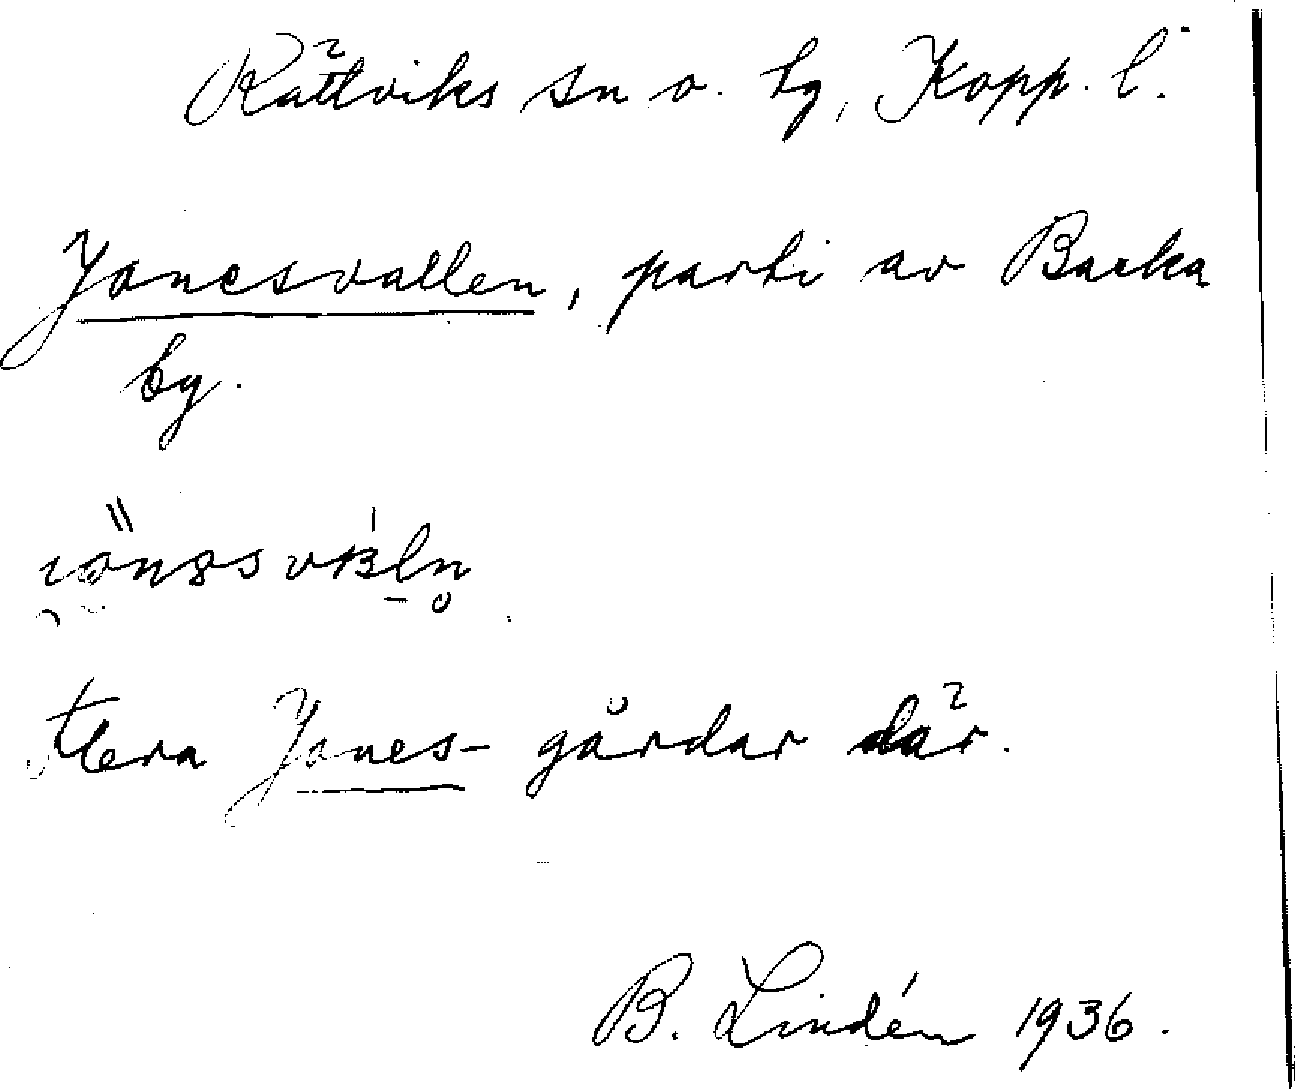 Rättviks sn o. hg, Kopp. l.
Jonesvallen, parti av Backa
by.
Flera Jones- gårdar där.
B. Lindén 1936.